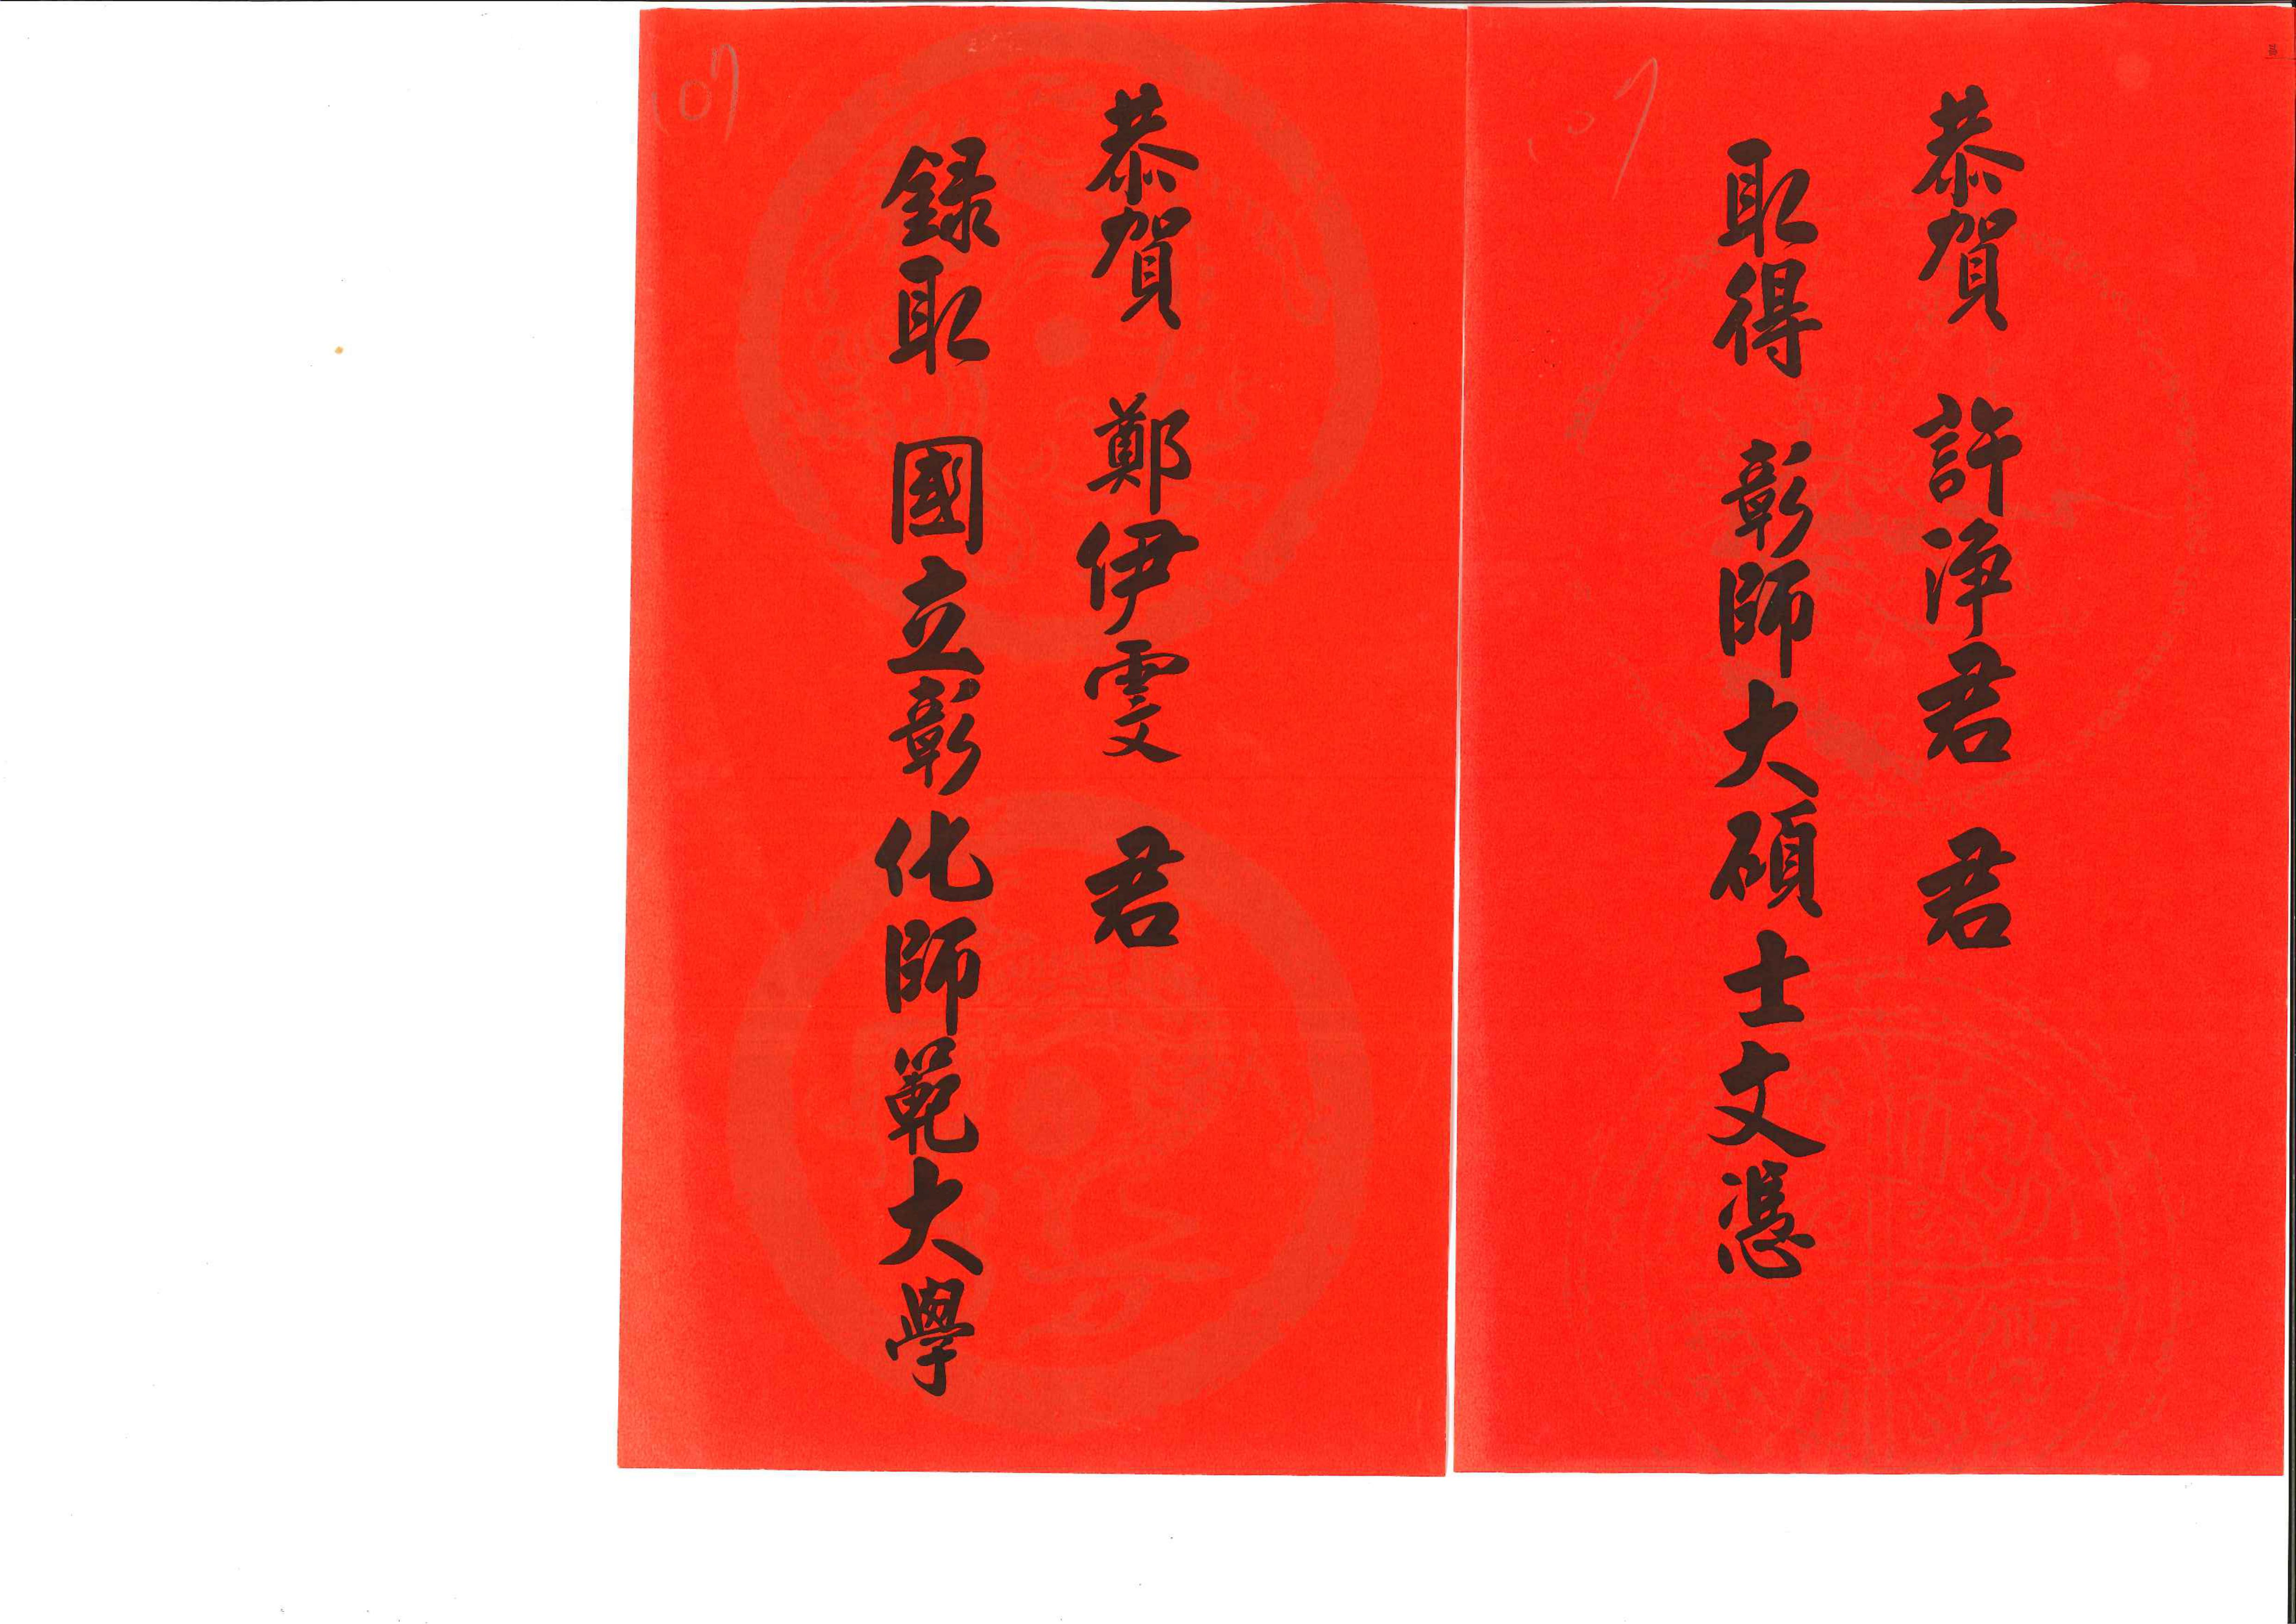 恭賀 許淨君 君
取得 彰師大碩士文憑
107
恭賀 鄭伊雯 君
錄取 國立彰化師範大學
107